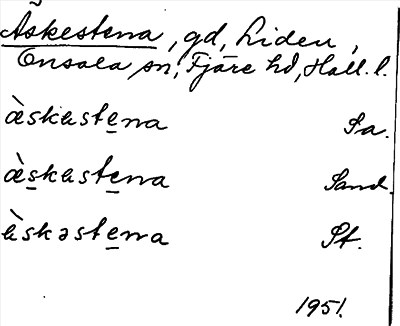 Äskestena, gd, Liden,
Onsala sn, Fjäre hd, Hall. l.
ä̀skestena Sa.
ä̀skestena Sand.
ä̀skəstena St.
1951.